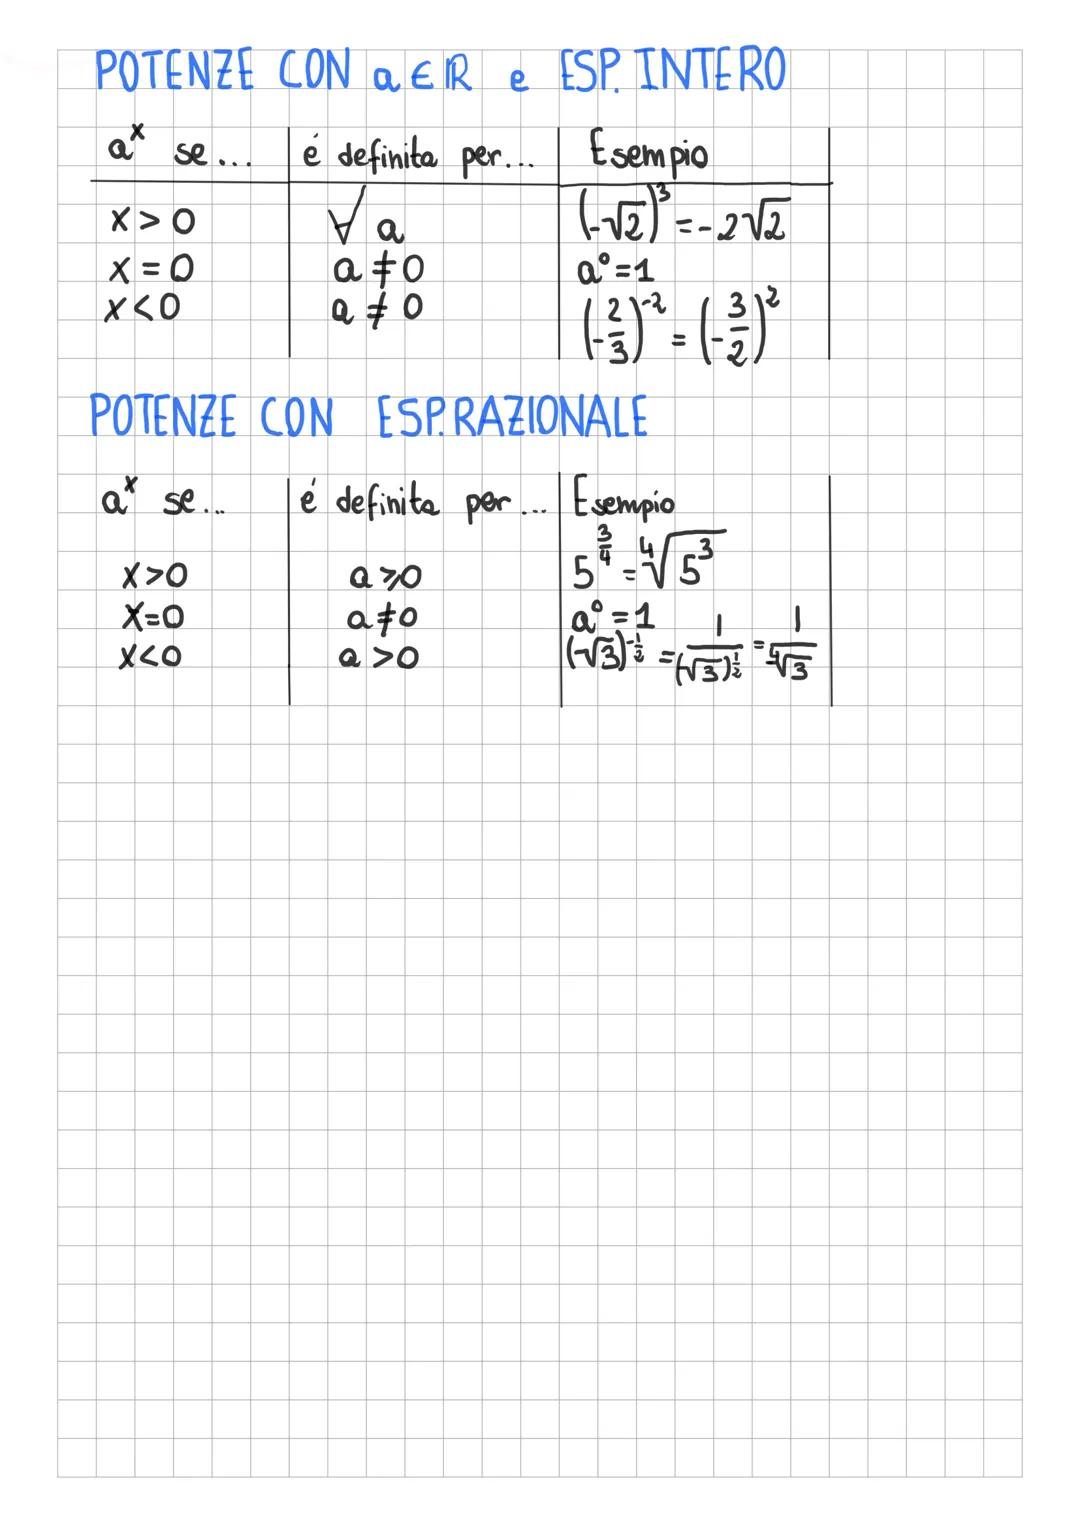 POTENZE CON a∈ℝ e ESP. INTERO
aˣ se... | é definita per... | Esempio
x>0 | ∀ a | (-√2)³ = -2√2
x=0 | a≠0 | a⁰=1
x<0 | a≠0 | (-2/3)⁻² = (-3/2)²
POTENZE CON ESP. RAZIONALE
aˣ se... | é definita per... | Esempio
x>0 | a⩾0 | 5^(3/4) = ⁴√5³
x=0 | a≠0 | a⁰=1
x<0 | a>0 | (√3)^(-1/2) = 1/(√3)^(1/2) = 1/⁴√3